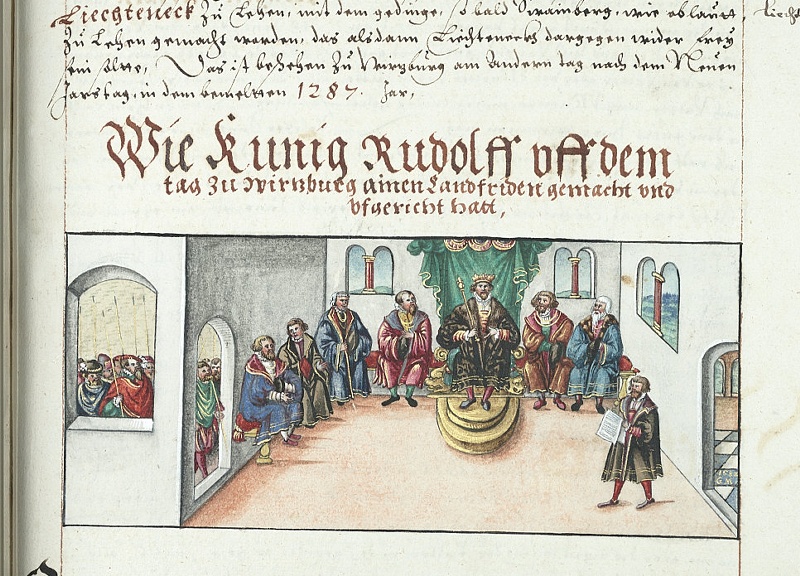 Liechteneck Zu Lehen, mit dem gedinge, so bald Swainberg, wie oblautt,
Zu Lehen gemacht worden, das alsdann Liechteneck dargegen wider frey
sein solte, Das ist beschehen Zu Wurtzburg am Andern tag nach dem Neuen
Jarstag, in dem bemeltten 1287. Jar,
Wie Kunig Rudolff vff dem
tag zu Wirtzburg ainen Landfriden gemacht vnd
vfgericht hatt,